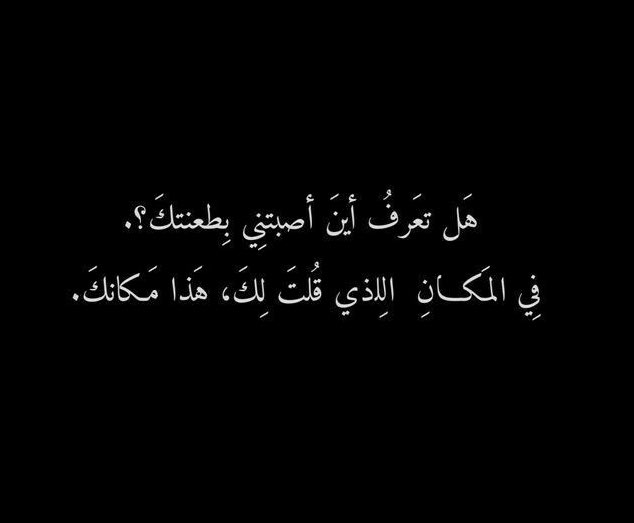 هَل تعَرفُ أينَ أصبتنِي بِطعنتكَ؟.
فِي المَكـــانِ اللِذي قُلتَ لِكَ، هَذا مَكانكَ.